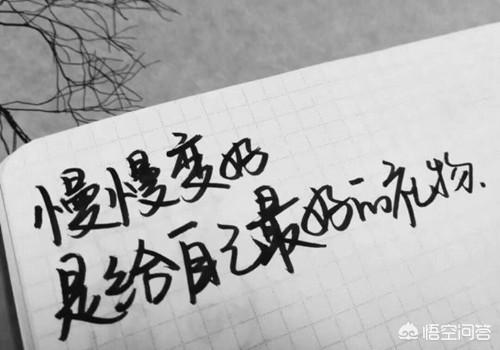 慢慢变好
是给自己最好的礼物.
悟空问答